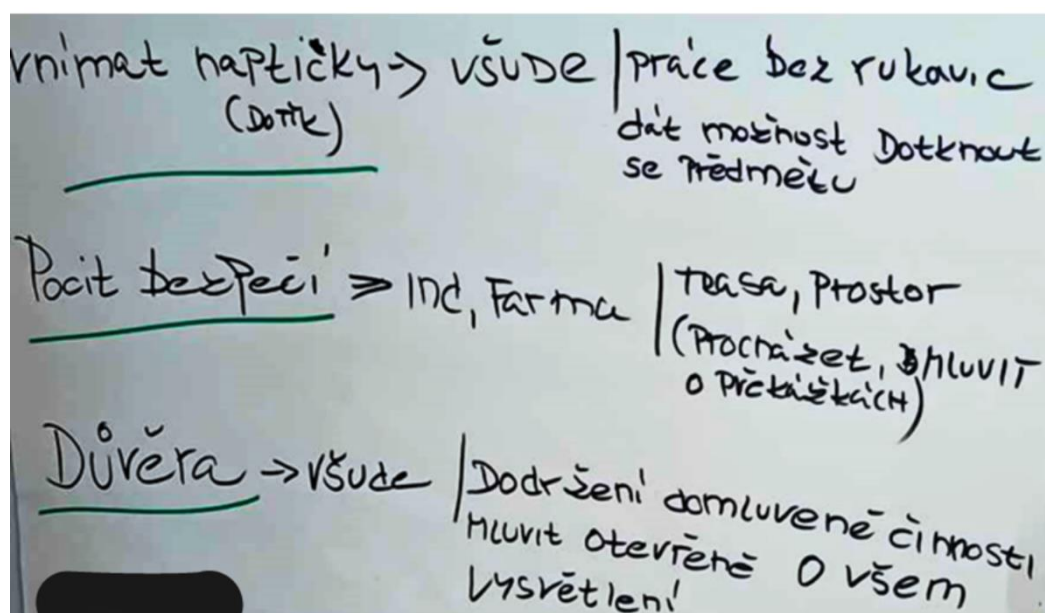 vnímat haptičky → všude | práce bez rukavic
(Dotik) dát možnost Dotknout
se předmětu
Pocit bezpečí → Ind, Farma | trasa, prostor
(Procházet, mluvit
o překážkách)
Důvěra → všude | Dodržení domluvené činnosti
mluvit otevřeně o všem
vysvětlení